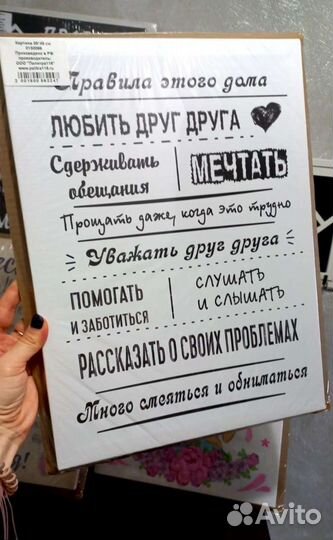 Картина 30*40 см
Произведено в РФ
производитель:
Правила этого дома
ЛЮБИТЬ ДРУГ ДРУГА
Сдерживать
обещания
МЕЧТАТЬ
Прощать даже, когда это трудно
Уважать друг друга
ПОМОГАТЬ
И ЗАБОТИТЬСЯ
СЛУШАТЬ
И СЛЫШАТЬ
РАССКАЗАТЬ О СВОИХ ПРОБЛЕМАХ
Много смеяться и обниматься
Avito